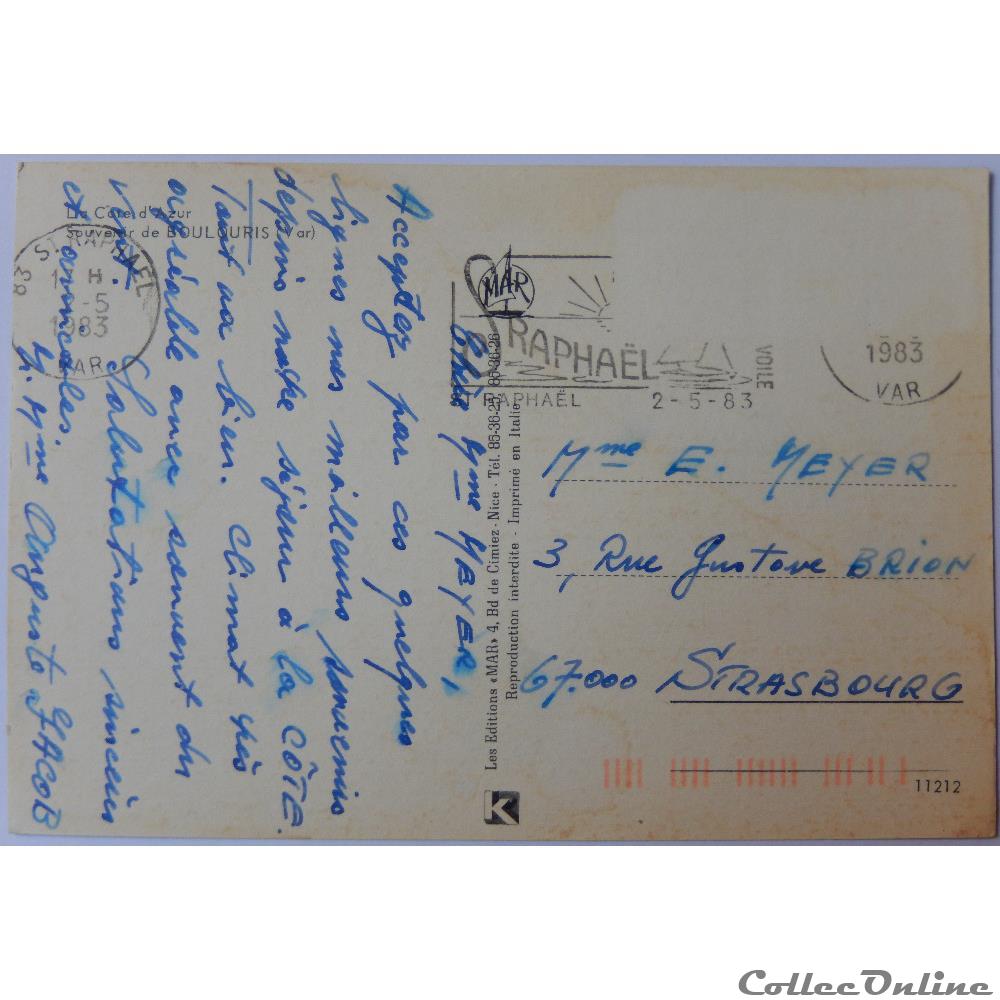 La Côte d'Azur
Souvenir de BOULOURIS (Var)
ST RAPHAËL
H
-5
1983
VAR
83
MAR
ST RAPHAËL
ST RAPHAËL
2-5-83
VOILE
1983
VAR
Chère Mme MEYER,
Acceptez par ces quelques
lignes nos meilleurs souvenirs
depuis notre séjour à la CÔTE.
Tout va bien. Climat très
agréable avec souvent du
vent.
Salutations sincères
et amicales.
M. Mme Auguste JACOB
Les Editions «MAR» 4, Bd de Cimiez - Nice - Tél. 85-36-25 85-36-26
Reproduction interdite - Imprimé en Italie
K
Mme E. MEYER
3, Rue Gustave BRION
67.000 STRASBOURG
11212
CollecOnline